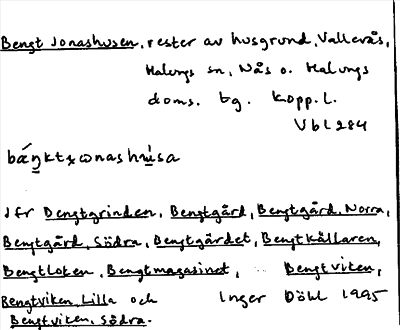 Bengt Jonashusen, rester av husgrund, Vallerås,
Malungs sn, Nås o. Malungs
doms. tg. Kopp.l.
Vbl 284
Jfr Bengtgrinden, Bengtgård, Bengtgård, Norra,
Bengtgård, Södra, Bengtgärdet, Bengtkällaren,
Bengtloken, Bengtmagasinet, Bengtviken,
Bengtviken, Lilla och Inger Döhl 1995
Bengtviken, Södra.